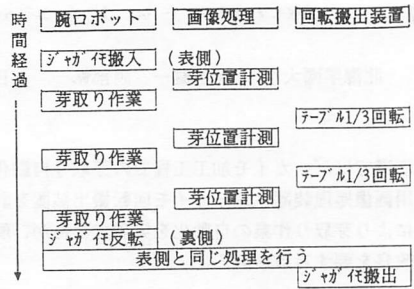 時間経過
腕ロボット 画像処理 回転搬出装置
ジャガイモ搬入 (表側)
芽位置計測
芽取り作業
テーブル1/3回転
芽位置計測
芽取り作業
テーブル1/3回転
芽位置計測
芽取り作業
ジャガイモ反転 (裏側)
表側と同じ処理を行う
ジャガイモ搬出